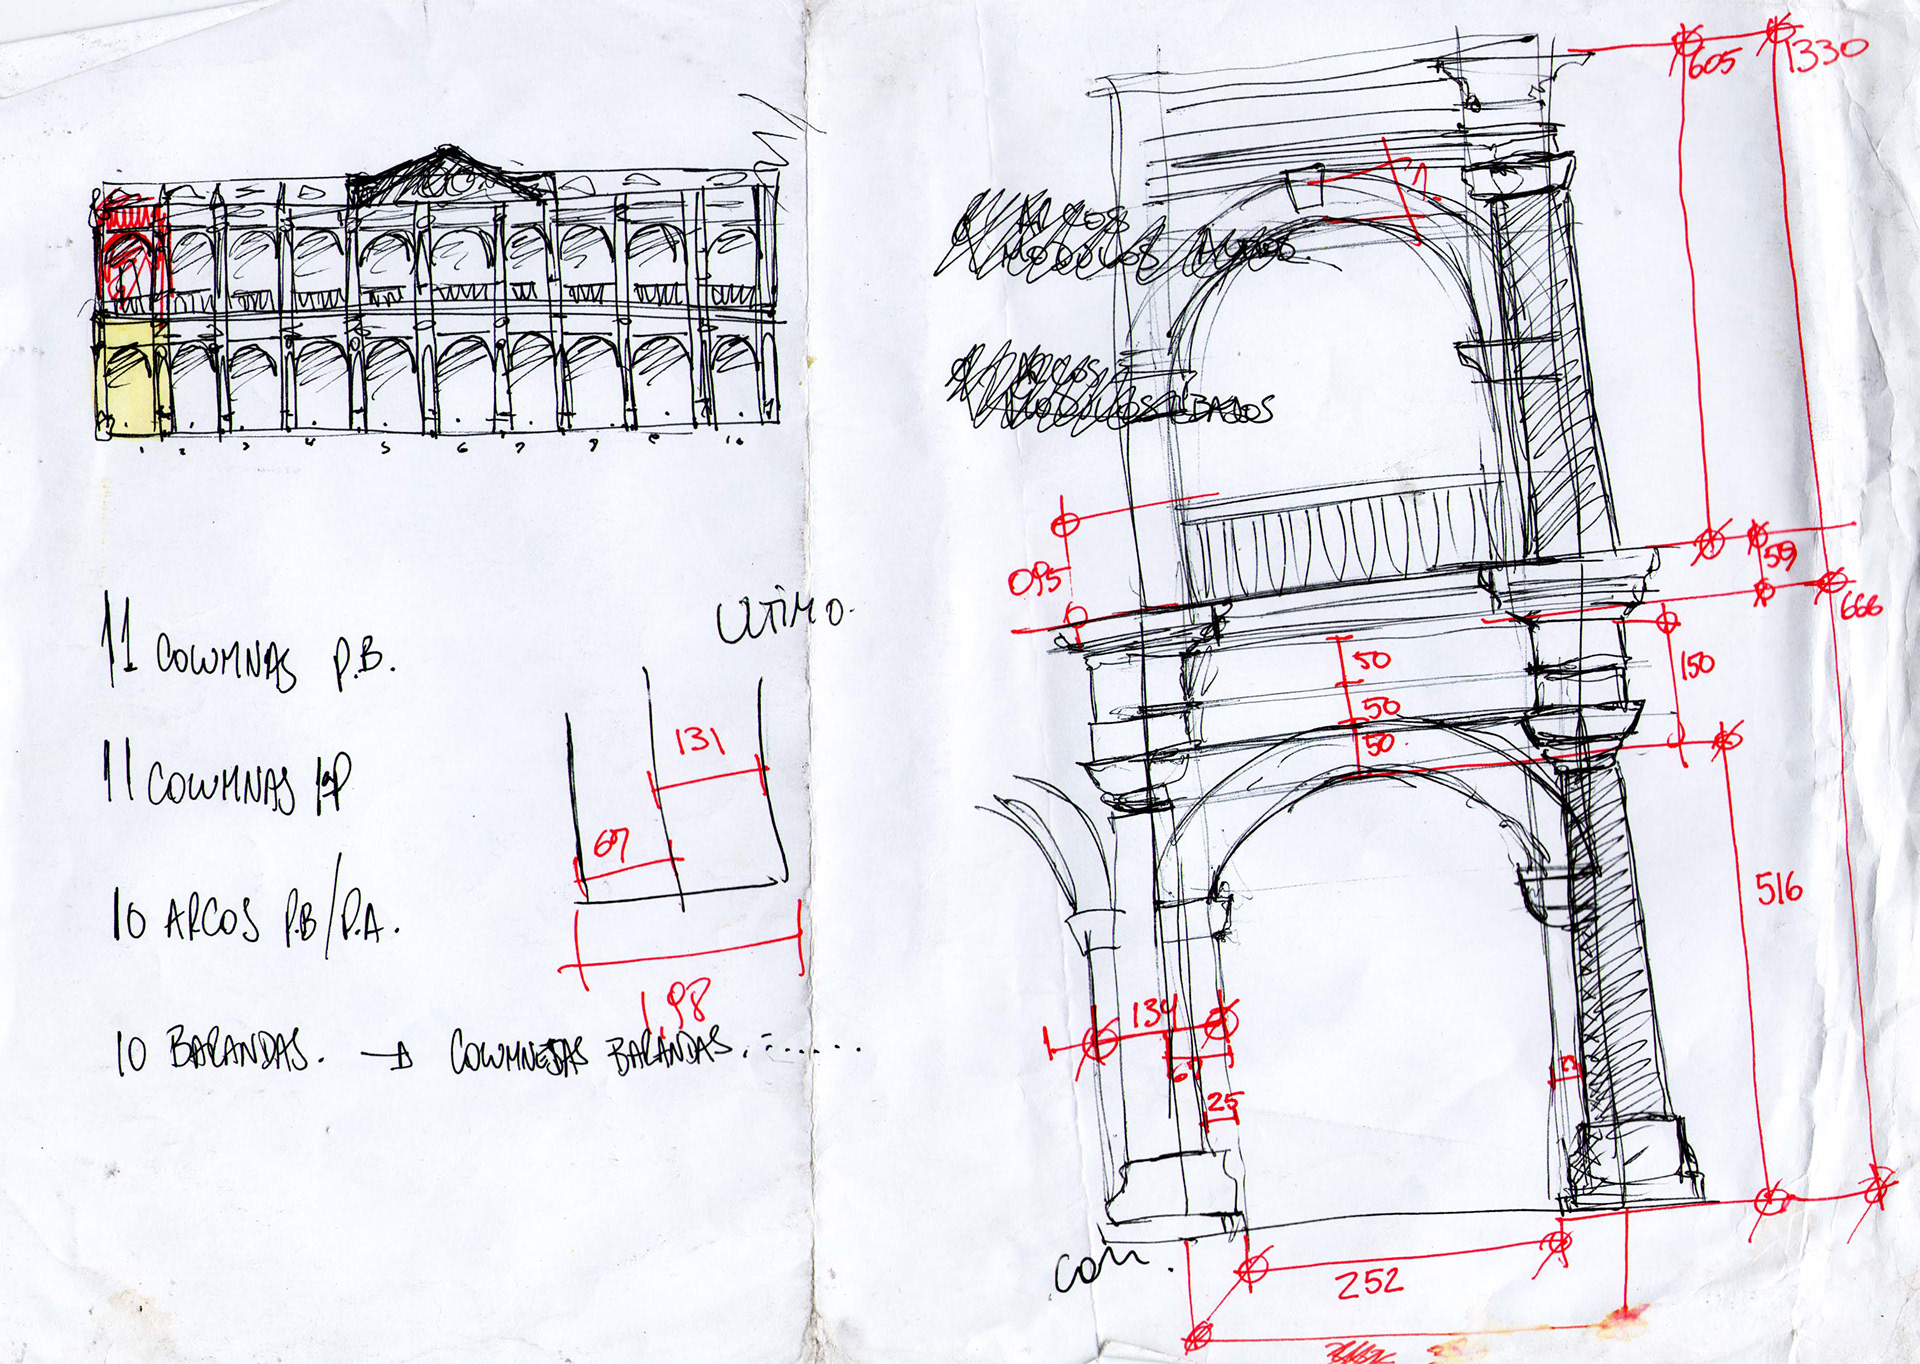 1 2 3 4 5 6 7 8 9 10
11 COLUMNAS P.B.
11 COLUMNAS 1ºP
10 ARCOS P.B/P.A.
10 BARANDAS. → COLUMNETAS BARANDAS.
ULTIMO.
131
67
1,98
ARCOS
MODULOS
ARCOS
MODULOS BAJOS
605
1330
?
095
59
666
50
50
50
150
516
134
67
25
13
252
COM.